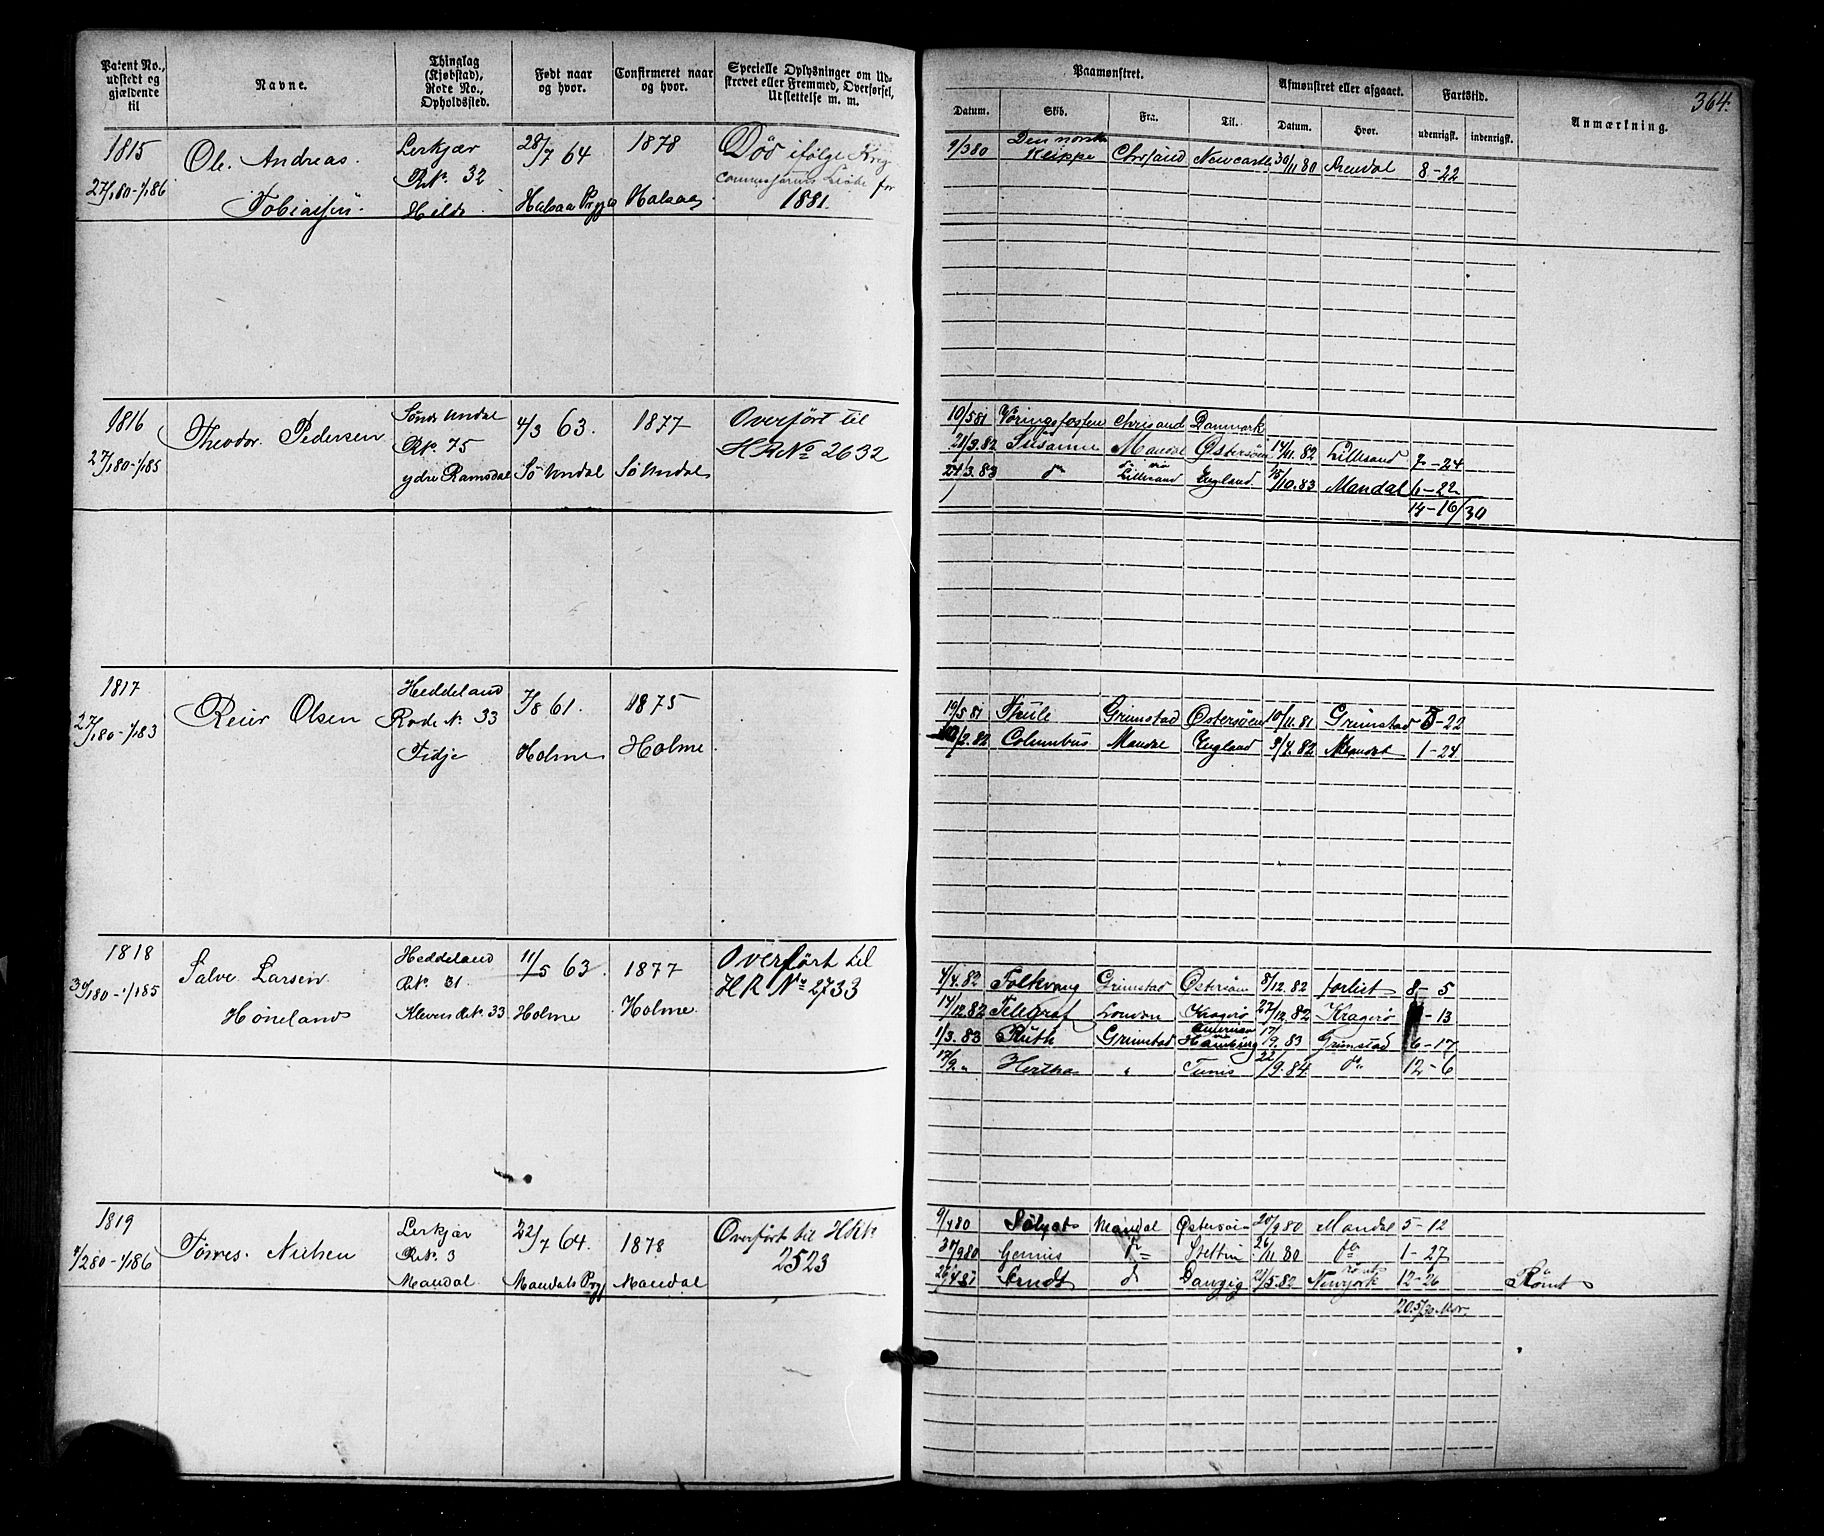 364.
Patent No., udstedt og gjældende til
Navne.
Thinglag (Kjøbstad), Rode No., Opholdssted.
Født naar og hvor.
Confirmeret naar og hvor.
Specielle Oplysninger om Udskrevet eller Fremmed, Overførsel, Udslettelse m. m.
Paamønstret.
Afmønstret eller afgaaet.
Fartstid.
Anmærkning.
Datum. Skib. Fra. Til. Datum. Hvor. udenrigsk. indenrigsk.
1815
27/1 80-1/1 86
Ole Andreas
Tobiassen
Lerkjær
R№ 32
Hilds
28/7 64
Halsaa Præg
1878
Halsaa
Død ifølge
for
1881.
9/3 80 Den norske Klippe Chrsand Newcastle 30/11 80 Arendal 8-22
1816
27/1 80-1/1 85
Theodor Pedersen
Sønd. Undal
R№ 75
ydre Ramsdal
4/3 63.
Sø Undal
1877
Sø Undal
Overført til
HR№ 2632
10/5 81 Vøringsfossen Chrisand Danmark
28/3.82 Susanne Mandal Østersøen 14/11.82 Lillesand 7-24
24/3.83 do Lillesand England 15/10.83 Mandal 6-22
14-16/30
1817
27/1 80-1/1 83
Reier Olsen
Heddeland
Rode №. 33
Tidje
7/8 61.
Holme
1875
Holme
19/5 81 Thule Grimstad Østersøen 10/11.81 Grimstad 5-22
/2.82 Columbus Mandal England 9/4.82 Mandal 1-24
1818
30/1 80-1/1 85
Salve Larsen
Høneland
Heddeland
R№. 31
Kleven R№. 33
11/5 63.
Holme
1877
Holme
Overført til
HR № 2733
4/4.82 Folkvang Grimstad Østersøen 8/12.82 forlist 8-5
14/12.82 Telegraf London Kragerø 27/12.82 Kragerø -13
1/3.83 Ruth Grimstad Hamburg 17/9.83 Grimstad 6-17
17/9 " Hertha " Tunis 22/9.84. do 12-6
1819
/2 80-1/1 86
Tørres Nielsen
Lerkjær
R№. 3
Mandal
22/7 64.
Mandals Præg
1878
Mandal
Overført til HR№
2523
9/4 80 Sølyst Mandal Østersøen 20/9 80 Mandal 5-12
30/9 80 Genius do Stettin 26/11.80 do 1-27
26/4.81 Arndt do Danzig 21/5.82 Newyork rømt 12-26 Rømt
20.5/30 Mdr.